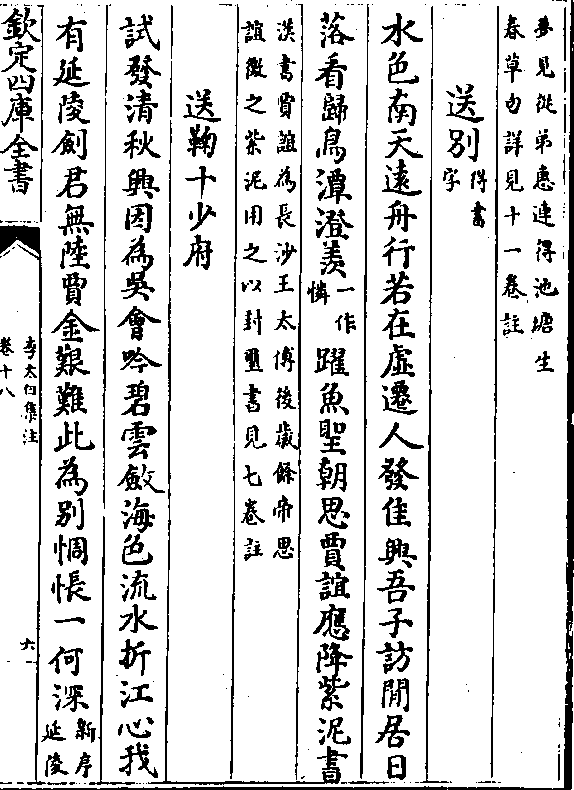 夢見從弟惠連得池塘生
春草句詳見十一卷註
送别
得書
字
水色南天遠舟行若在虛遷人發佳興吾子訪閒居日
落看歸鳥潭澄羨
一作
憐
躍魚聖朝思賈誼應降紫泥書
漢書賈誼為長沙王太傅後歲餘帝思
誼徵之紫泥用之以封璽書見七卷註
送鞠十少府
試發清秋興因為吳會吟碧雲斂海色流水折江心我
有延陵劍君無陸賈金艱難此為别惆悵一何深
新序
延陵
欽定四庫全書
李太白集注
卷十八